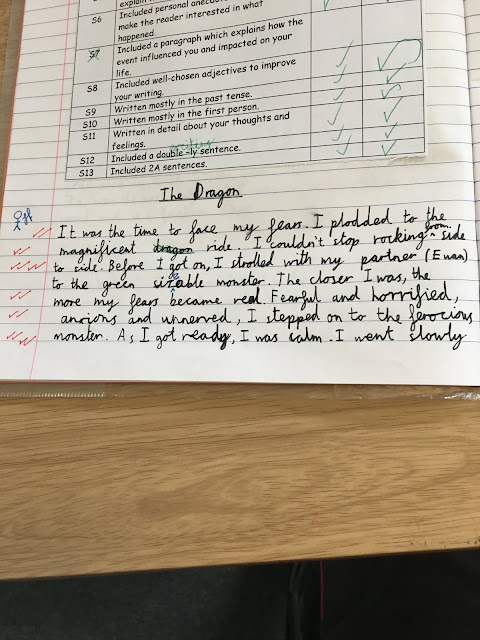 S6 Included personal anecdotes
make the reader interested in what
happened.
S7 Included a paragraph which explains how the
event influenced you and impacted on your
life.
S8 Included well-chosen adjectives to improve
your writing.
S9 Written mostly in the past tense.
S10 Written mostly in the first person.
S11 Written in detail about your thoughts and
feelings.
S12 Included a double -ly sentence.
S13 Included 2A sentences.
The Dragon
It was the time to face my fears. I plodded to the
magnificent dragon ride. I couldn't stop rocking from side
to side. Before I got on, I strolled with my partner (Euan)
to the green sizeable monster. The closer I was, the
more my fears became real. Fearful and horrified,
anxious and unnerved, I stepped on to the ferocious
monster. As I got ready, I was calm. I went slowly